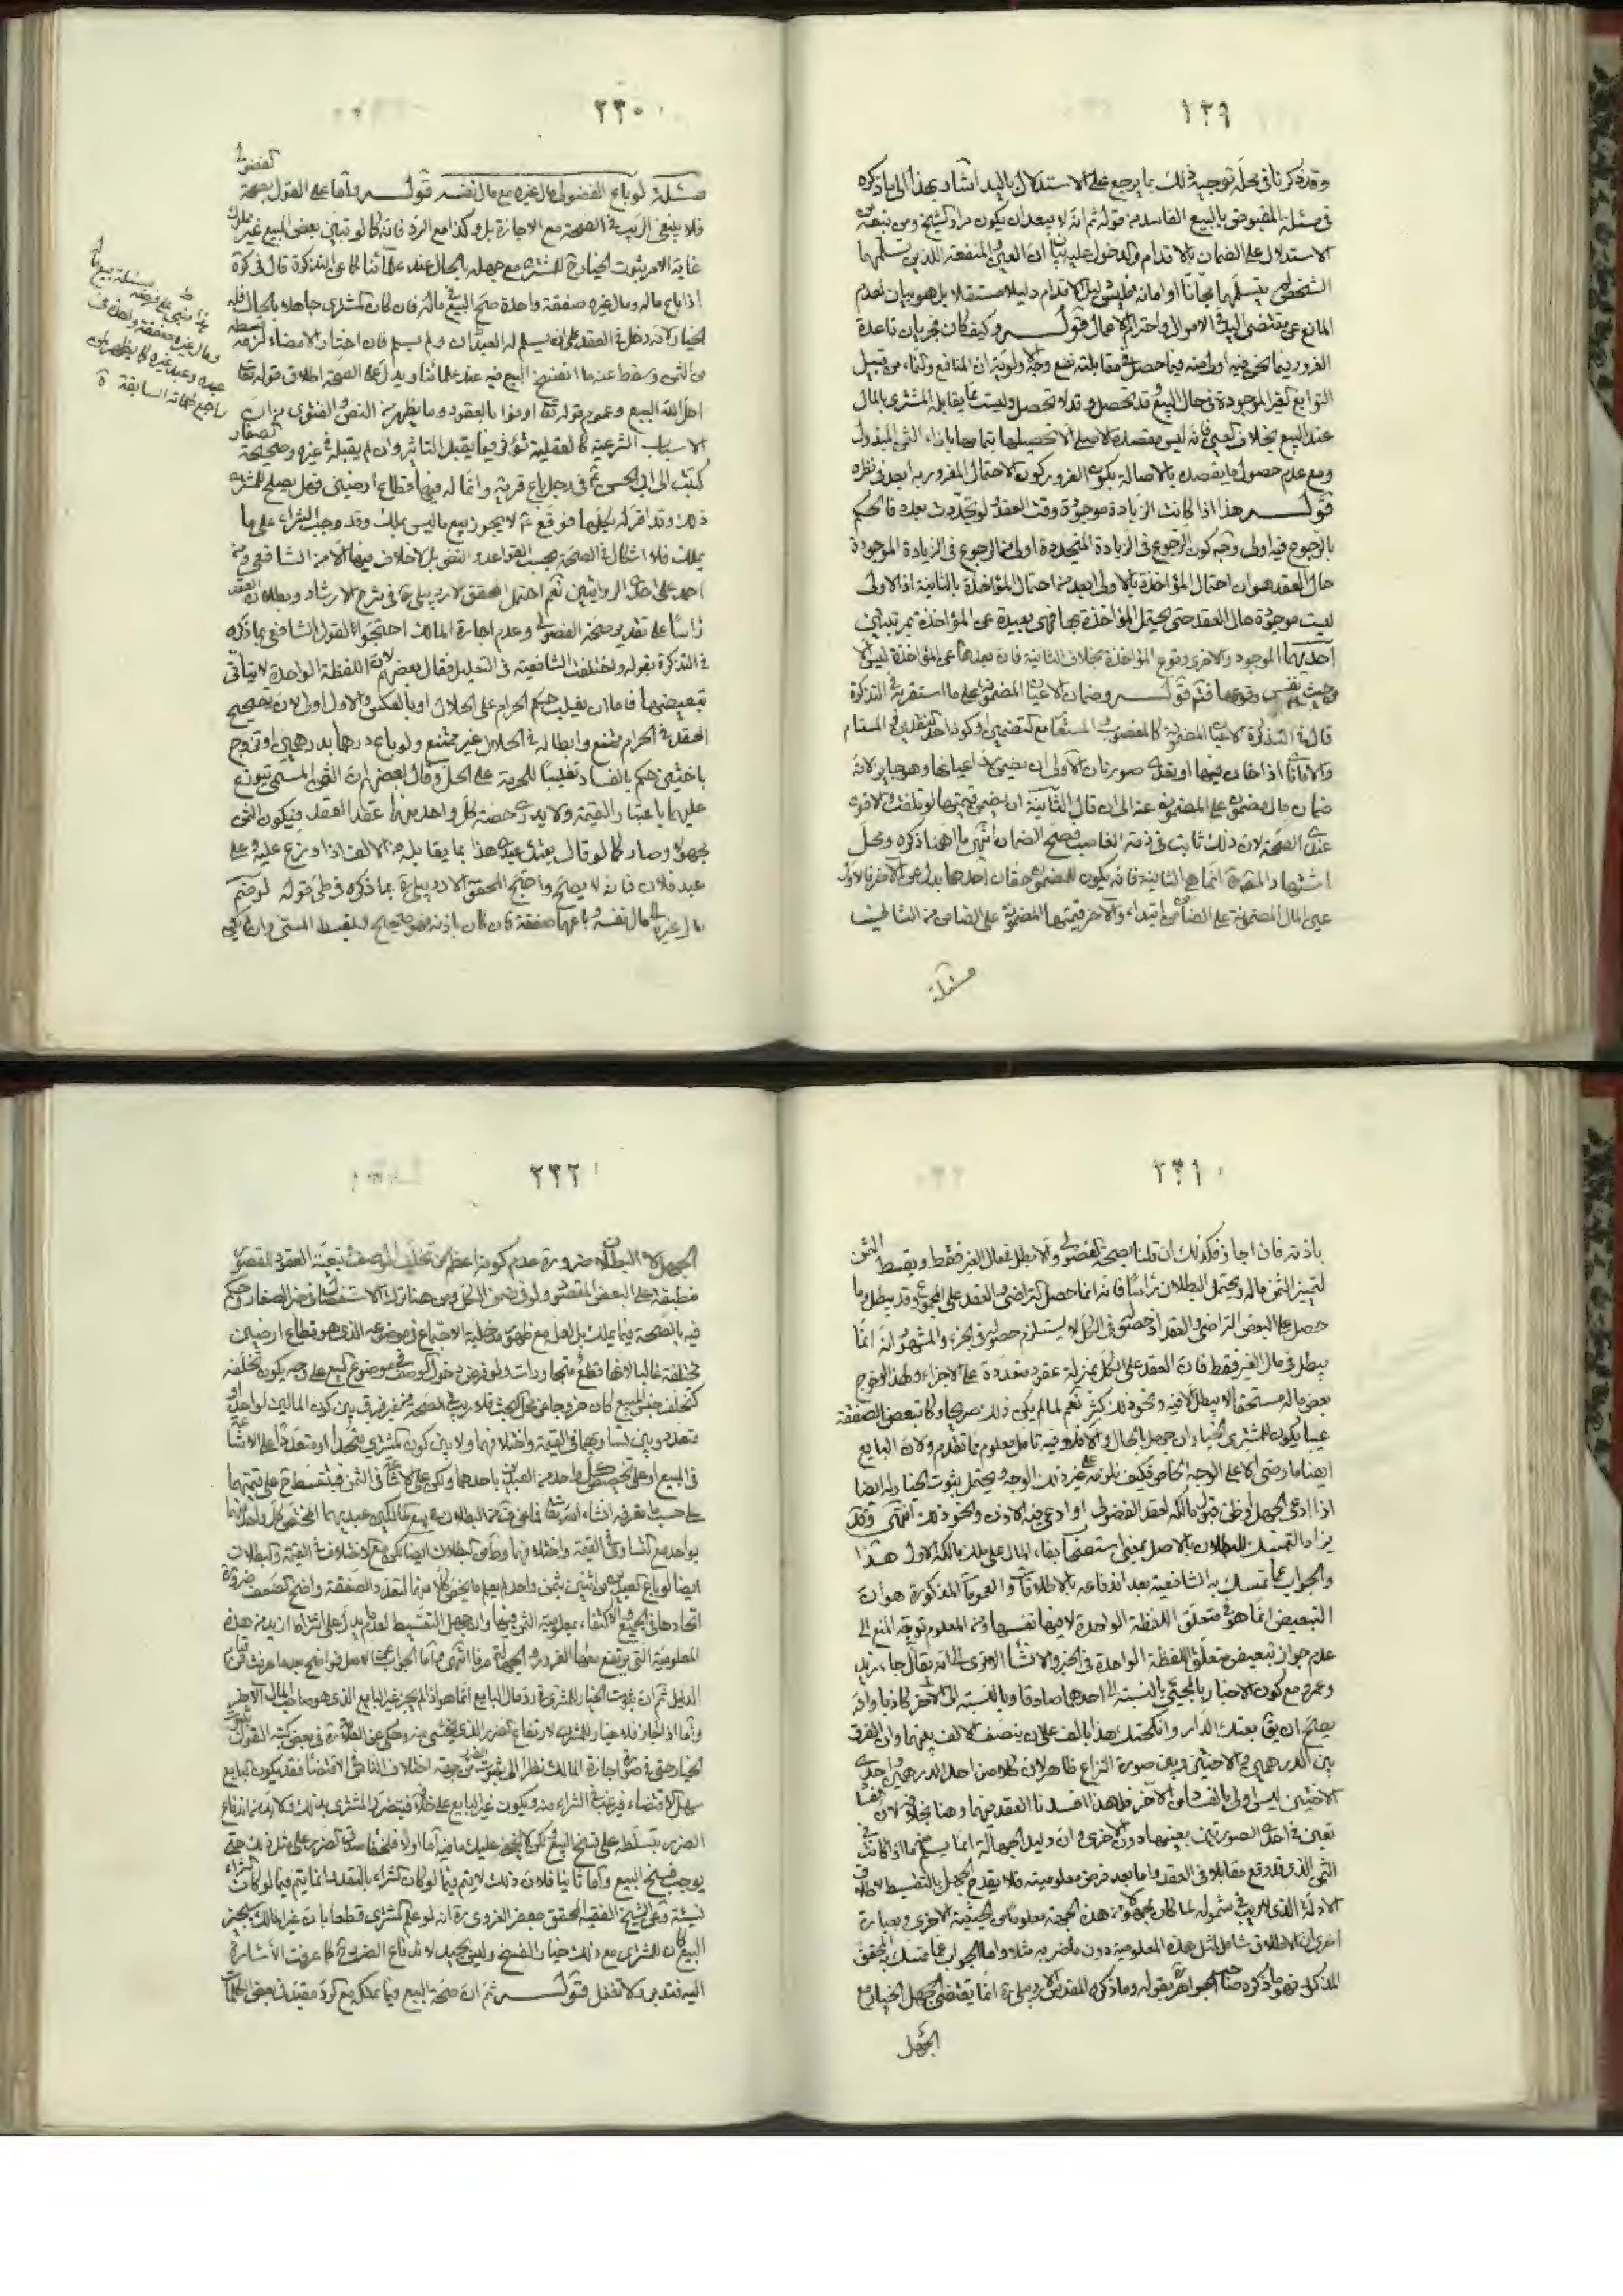 ٢٢٩
وقد ذكرنا في محلّه توجيه ذلك بما يرجع على الاستدلال باليد اشار بهذا الى ما ذكره
في مسئلة المقبوض بالبيع الفاسد من قوله ثم انه لا يبعد ان يكون مراد الشيخ ومن تبعه من
الاستدلال على الضمان بالاقدام والدخول عليه بيان ان العين والمنفعة اللذين تسلّمهما
الشخص لم يتسلّمهما مجّانا او امانة فليس دليل الاقدام دليلا مستقلا بل هو بيان لعدم
المانع عن مقتضى اليد في الاموال واحترام الاعمال قوله وكيف كان فجريان قاعدة
الغرور فيما نحن فيه اولى منه فيما حصل في مقابلته نفع وجه الاولوية ان المنافع والنماء من قبيل
التوابع الغير الموجودة في حال البيع قد تحصل وقد لا تحصل وليست مما يقابله المشترى بالمال
عند البيع بخلاف العين فانه ليس مقصده الاصلي الا تحصيلها بتمامها بازاء الثمن المبذول
ومع عدم حصول ما يقصده بالاصالة يكون الغرور كون الاحتمال المغرور به ابعد في نظره
قوله هذا اذا كانت الزيادة موجودة وقت العقد ولو تجدّدت بعده فالحكم
بالرجوع فيه اولى وجه كون الرجوع في الزيادة المتجددة اولى من الرجوع في الزيادة الموجودة
حال العقد هو ان احتمال المؤاخذة بالاولى ابعد من احتمال المؤاخذة بالثانية اذ الاولى
ليست موجودة حال العقد حتى يحتمل المؤاخذة بها فهي بعيدة عن المؤاخذة بمرتبتين
احديهما الموجود والاخرى وقوع المؤاخذة بخلاف الثانية فان بعدها عن المؤاخذة ليس الا
من حيث نفس وقوعها فتم قوله وضمان الاعيان المضمونة على ما استقربه في التذكرة
قال في التذكرة الاعيان المضمونة كالمغصوب والمستعار مع التضمين او كونه احد النقدين والمستام
والامانات اذا خان فيها او تعدّى صورتان الاولى ان يضمن ردّ اعيانها وهو جايز لانه
ضمان مال مضمون على المضمون عنه الى ان قال الثانية ان يضمن قيمتها لو تلفت والاقوى
عندي الصحة لان ذلك ثابت في ذمة الغاصب فصحّ الضمان انتهى ما اهمّنا ذكره ومحلّ
استشهاد المص ره انما هي الثانية فانه يكون للمضمون حقان احدهما بدل عن الآخر فالاول
عين المال المضمونة على الضامن ابتداء والآخر قيمتها المضمونة على الضامن من الثاني
مسئلة
٢٣٠
مسئلة لو باع الفضولي مال غيره مع مال نفسه قوله واما على القول بصحة الفضولي
فلا ينبغي الريب في الصحة مع الاجازة بل وكذا مع الردّ فانه كما لو تبيّن بعض المبيع غير مملوك
غاية الامر ثبوت الخيار ح للمشترى مع جهله بالحال عند علمائنا كما عن التذكرة قال في كرة
اذا باع ماله ومال غيره صفقة واحدة صحّ البيع في ماله فان كان المشترى جاهلا بالحال فله
الخيار لانه دخل في العقد على ان يسلم له العبدان ولم يسلم فان اختار الامضاء لزمه قسطه
من الثمن وسقط عنه ما انفسخ البيع فيه عند علمائنا ويدلّ على الصحة اطلاق قوله تعالى
احلّ الله البيع وعموم قوله تعالى اوفوا بالعقود وما يظهر من النصّ والفتوى من ان
الاسباب الشرعية كالعقلية تؤثر فيما يقبل التاثير وان لم يقبله في غيره وصحيحة الصفار
كتبت الى ابي الحسن ع في رجل باع قرية وانما له فيها قطاع ارضين فهل يصلح للمشترى
ذلك وقد اقرّ له بكلّها فوقع ع لا يجوز بيع ما ليس يملك وقد وجب الشراء على ما
يملك فلا اشكال في الصحة بحسب القواعد والنص بل لا خلاف فيها الا من الشافعي ومن
احمد على احدى الروايتين نعم احتمل المحقق الاردبيلي ره في شرح الارشاد وبطلان العقد
راسا على تقدير صحة الفضولي وعدم اجازة المالك احتجّوا لقول الشافعي بما ذكره
في التذكرة بقوله واختلفت الشافعية في التعليل فقال بعضهم لان اللفظة الواحدة لا يتأتّى
تبعيضها فاما ان يغلب حكم الحرام على الحلال او بالعكس والاول اولى لان تصحيح
العقد في الحرام ممتنع وابطاله في الحلال غير ممتنع ولو باع درهما بدرهمين او تزوج
باختين حكم بالفساد تغليبا للحرمة على الحلّ وقال بعضهم ان الثمن المسمّى يتوزع
عليهما باعتبار القيمة ولا يدرى حصة كل واحد منهما عند العقد فيكون الثمن
مجهولا وصار كما لو قال بعتك عبدي هذا بما يقابله من الالف اذا وزع عليه وعلى
عبد فلان فانه لا يصحّ واحتجّ المحقق الاردبيلي ره بما ذكره في طيّ قوله لو ضمّ
مال غيره الى مال نفسه وباعهما صفقة فان كان باذنه فهو صحيح ويقسط المسمى وان لم يكن
٢٣١
باذنه فان اجاز فكذلك ان قلنا بصحة الفضولي والا بطل في مال الغير فقط ويقسط الثمن
ليتميز الثمن ماله ويحتمل البطلان راسا فانه انما حصل التراضي والعقد على المجموع وقد بطل وما
حصل على البعض التراضي والعقد اذ حصوله في الكل لا يستلزم حصوله في الجزء والمشهور انه انما
يبطل في مال الغير فقط فان العقد على الكل بمنزلة عقود متعددة على الاجزاء ولهذا لو خرج
بعض ماله مستحقا لا يبطل الا فيه ونحو ذلك كثير نعم لما لم يكن ذلك صريحا وكان تبعض الصفقة
عيبا يكون للمشترى الخيار ان جهل بالحال والا فلا وفيه تامل معلوم مما تقدم ولان البايع
ايضا ما رضى الا على الوجه الخاص فكيف نلزمه على غير ذلك الوجه ويحتمل ثبوت الخيار له ايضا
اذا ادعى الجهل او ظن قبول مالكه لعقد الفضولي او ادعى فيه الاذن ونحو ذلك انتهى وقد
يزاد التمسك للبطلان بالاصل بمعنى استصحاب بقاء المال على ملك مالكه الاول هذا
والجواب عما تمسك به الشافعية بعد اندفاعه بالاطلاقات والعمومات المذكورة هو ان
التبعيض انما هو في متعلق اللفظة الواحدة لا فيها نفسها ومن المعلوم توجّه المنع الى
عدم جواز تبعيض متعلق اللفظة الواحدة في الخبر والانشاء الا ترى انه يقال جاء زيد
وعمرو مع كون الاخبار بالمجيئ بالنسبة الى احدهما صادقا وبالنسبة الى الآخر كاذبا وانه
يصحّ ان يق بعتك الدار وانكحتك هذا بالف على ان ينصف الالف بينهما وان الفرق
بين الدرهمين والاختين وبين صورة النزاع ظاهر لان كلا من احد الدرهمين واحدى
الاختين ليس اولى بالفساد من الآخر فلهذا افسدنا العقد فيهما وهنا بخلافه لان الفساد
تعين في احدى الصورتين بعينها دون الاخرى وان دليل الجهالة انما يسلم فيما اذا كانت في
الثمن الذي قد وقع مقابلا في العقد واما بعد فرض معلوميته فلا يقدح الجهل بالتقسيط لاطلاق
الادلة الذي لا ريب في شموله لما كان مجهولا من هذه الجهة معلوما من الحيثية الاخرى وبعبارة
اخرى ان الاطلاق شامل لمثل هذه المعلومية دون ما ضرّ به مثلا واما الجواب عما تمسك به المحقق
المذكور فهو ما ذكره صاحب الجواهر ره بقوله وما ذكره المقدس الاردبيلي ره انما يقتضى الجهل الخيار مع
الجهل
٢٣٢
الجهل لا البطلان ضرورة عدم كونه اعظم من تخلف الوصف تبعيّة العقود للقصود
منطبقة على البعض المقصود ولو في ضمن الكل ومن هنا ترك الاستفصال في خبر الصفار وحكم
فيه بالصحة فيما يملك بل لعل مع ظهور مدخلية الاجتماع في موضوعه الذي هو قطاع ارضين
مختلفة غالبا لانها قطع متجاورات ولو فرض دخول الوصف في موضوع المبيع على وجه يكون تخلفه
كتخلف جنس المبيع كان خروجا عن محل البحث فلا ريب في الصحة من غير فرق بين كون المالين لواحد او
متعدد وبين تساويهما في القيمة واختلافهما ولا بين كون المشترى متحدا او متعددا على الاشاعة
في المبيع او على تخصيص كل واحد من العبدين باحدهما ولكن على الاشاعة في الثمن فيتقسط ح على قيمتهما
على حسب ما تعرفه انشاء الله تعالى فما عن
بواحد مع تساوي القيمة واختلافهما
ايضا لو باع العبدين من اثنين بثمن واحد لم يعلم ما يخص كلا منهما لتعدد الصفقة واضح الضعف ضرورة
اتحادها في الجميع والاكتفاء بمعلومية الثمن فيها وان جهل التقسيط لعدم دليل على اشتراط ازيد من هذه
المعلومية التي يرتفع معها الغرر والجهالة عرفا انتهى واما الجواب عن الاصل فواضح بعد ما عرفت من
الدليل ثم ان ثبوت الخيار للمشترى في ردّ مال البايع انما هو اذا لم يجز غير البايع الذي هو صاحب المال الآخر
واما اذا اجاز فلا خيار للمشترى لارتفاع الضرر الذي يخشى منه وحكى عن العلامة ره في بعض كتبه القول بثبوت
الخيار حتى في صورة اجازة المالك نظرا الى ثبوت الضرر من جهة اختلاف الناس في الاقتضاء فقد يكون البايع
سهل الاقتضاء فيرغب في الشراء منه ويكون غير البايع على خلافه فيتضرر المشترى بذلك فلا بد من اندفاع
الضرر بتسلّط على فسخ البيع لكن لا يخفى عليك ما فيه اما اولا فلخفاء صدق الضرر على مثل ذلك حتى
يوجب فسخ البيع واما ثانيا فلان ذلك لا يتم فيما لو كان الشراء بالنقد وانما يتم فيما لو كان الشراء
نسيئة وعن الشيخ الفقيه المحقق جعفر الغروي ره انه لو علم المشترى قطعا بان غير المالك سيجيز
البيع كان للمشترى مع ذلك خيار الفسخ وليس بجيد لاندفاع الضرر ح كما عرفت الاشارة
اليه فتدبر ولا تغفل قوله ثم ان صحة البيع فيما يملكه مع الردّ مقيد في بعض الكلمات